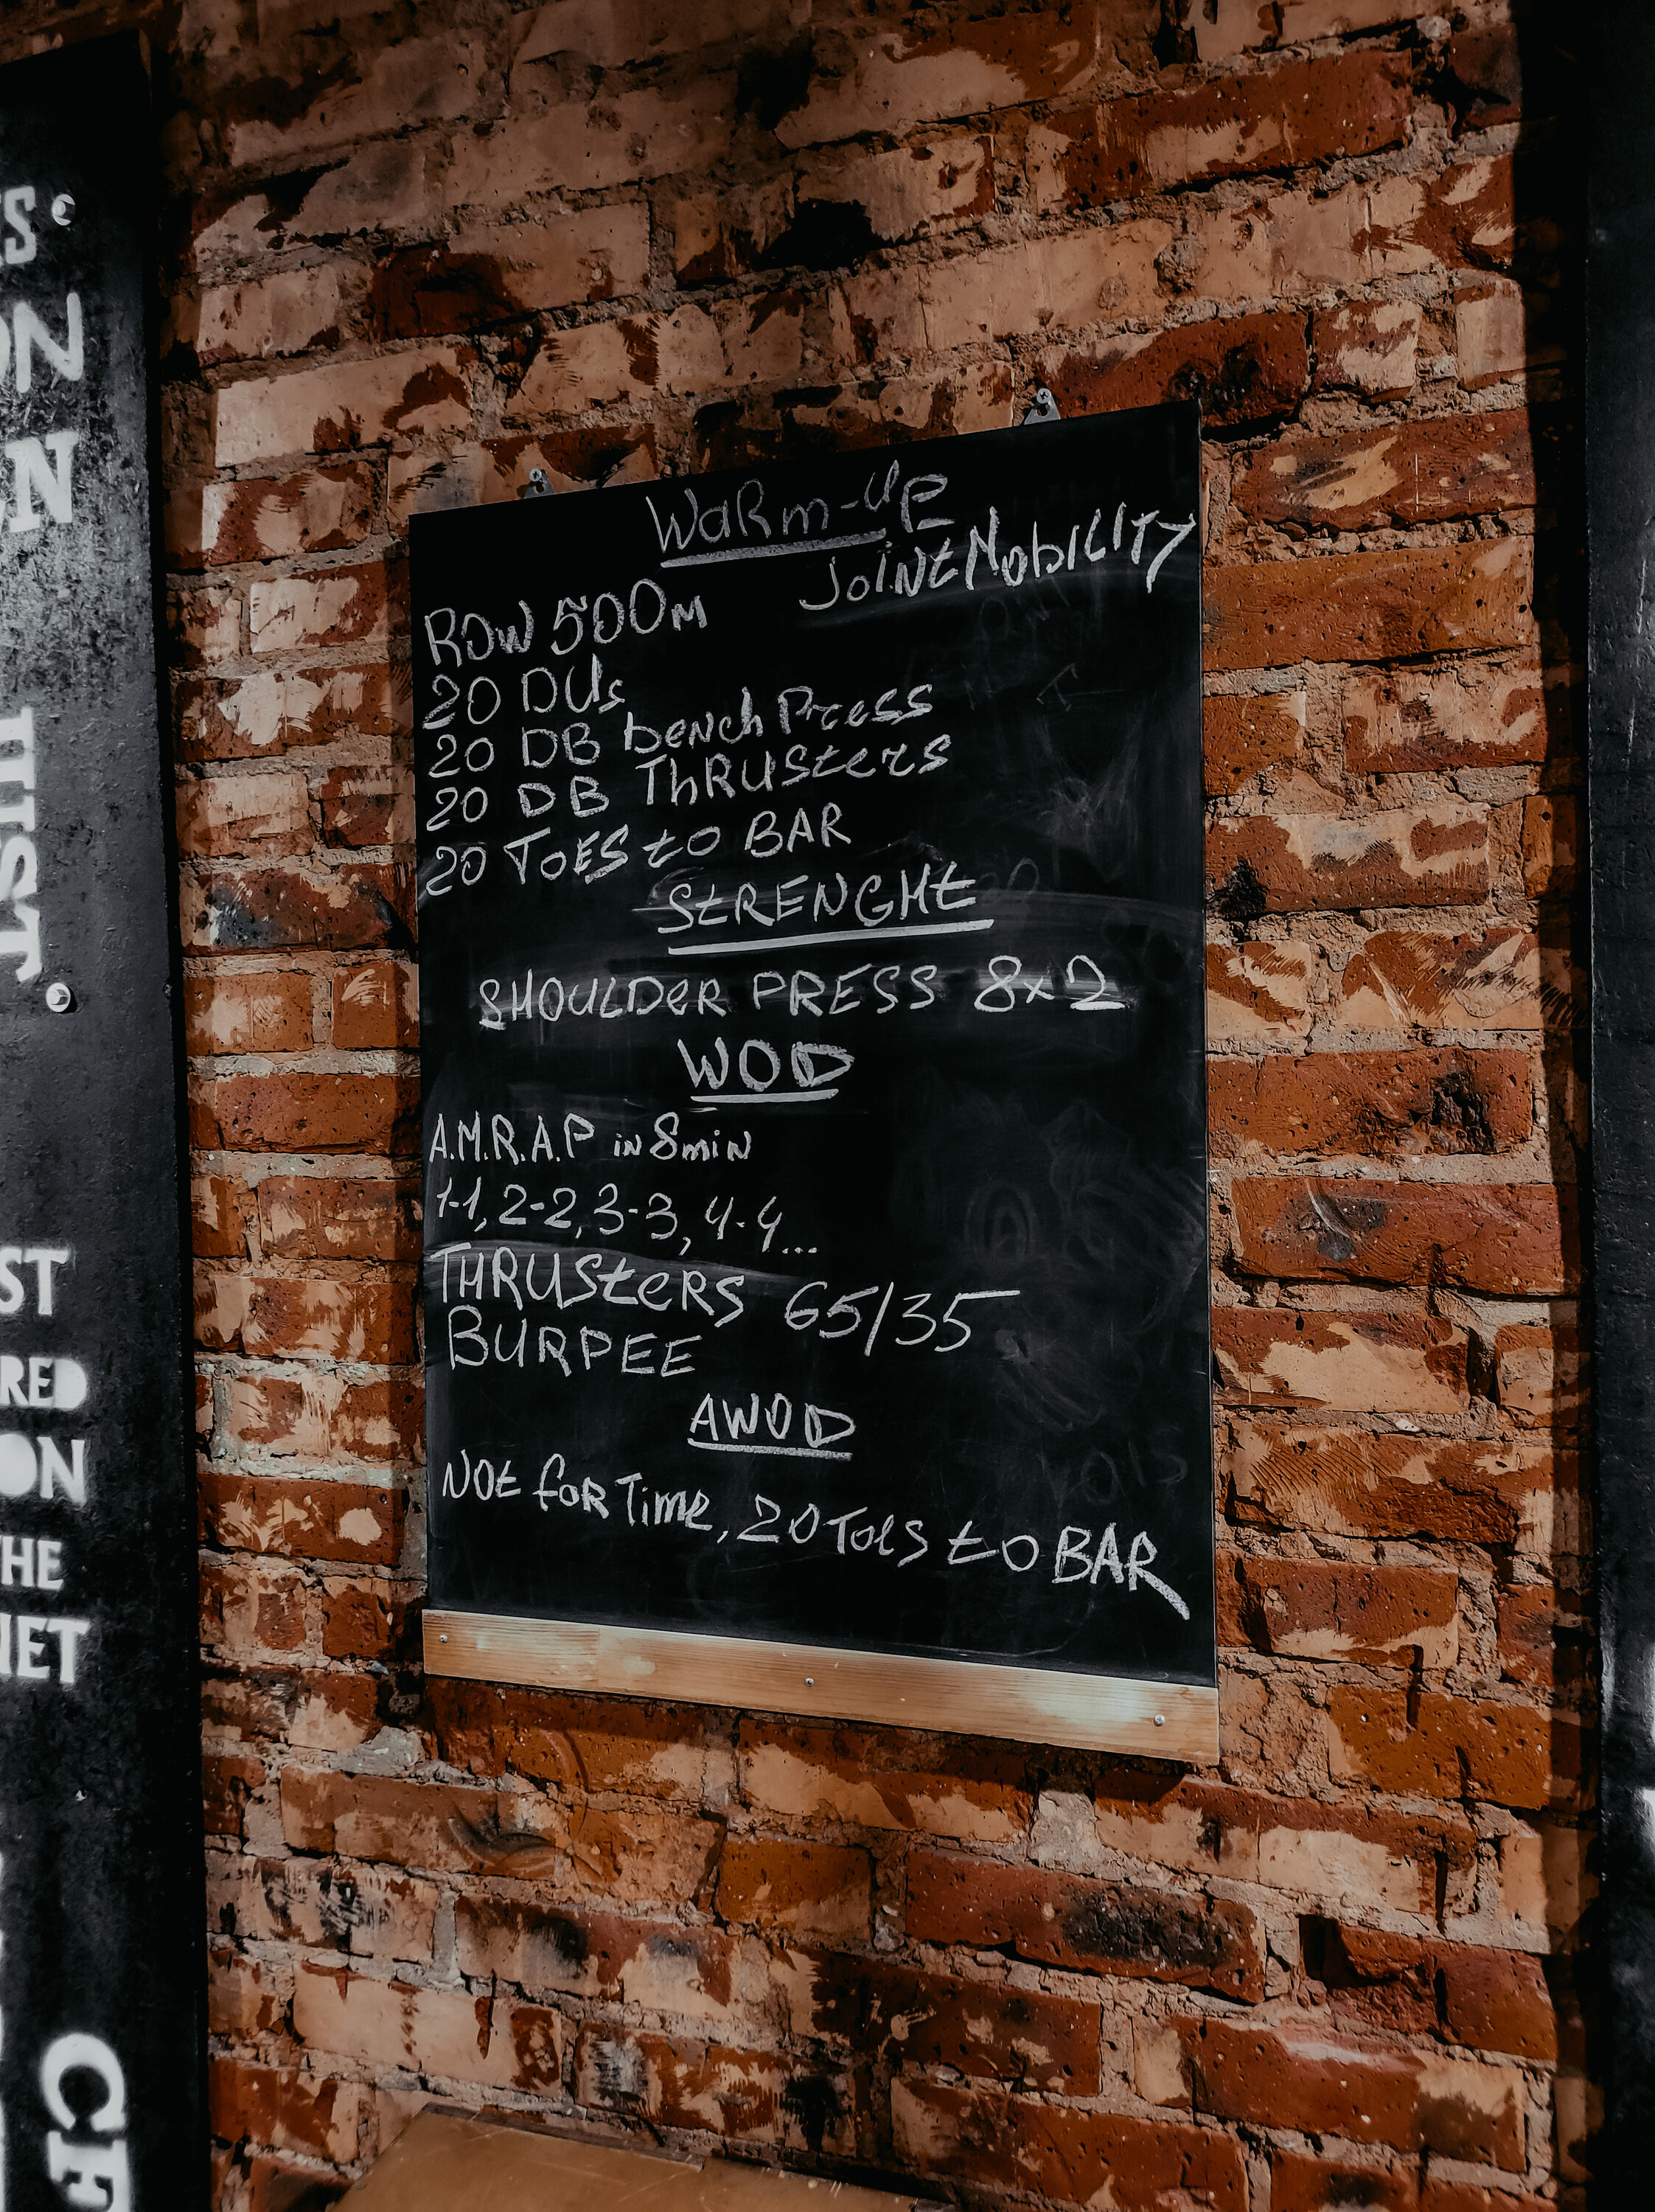 S.
ON
N
HIST.
ST
RED
ON
THE
NET
CF
Warm-up
Joint Mobility
Row 500m
20 DUs
20 DB bench Press
20 DB Thrusters
20 Toes to BAR
STRENGHt
SHOULDER PRESS 8x2
WOD
A.M.R.A.P in 8min
1-1, 2-2, 3-3, 4-4...
THRUSteRS 65/35
BURPEE
AWOD
Not for Time, 20 Toes to BAR